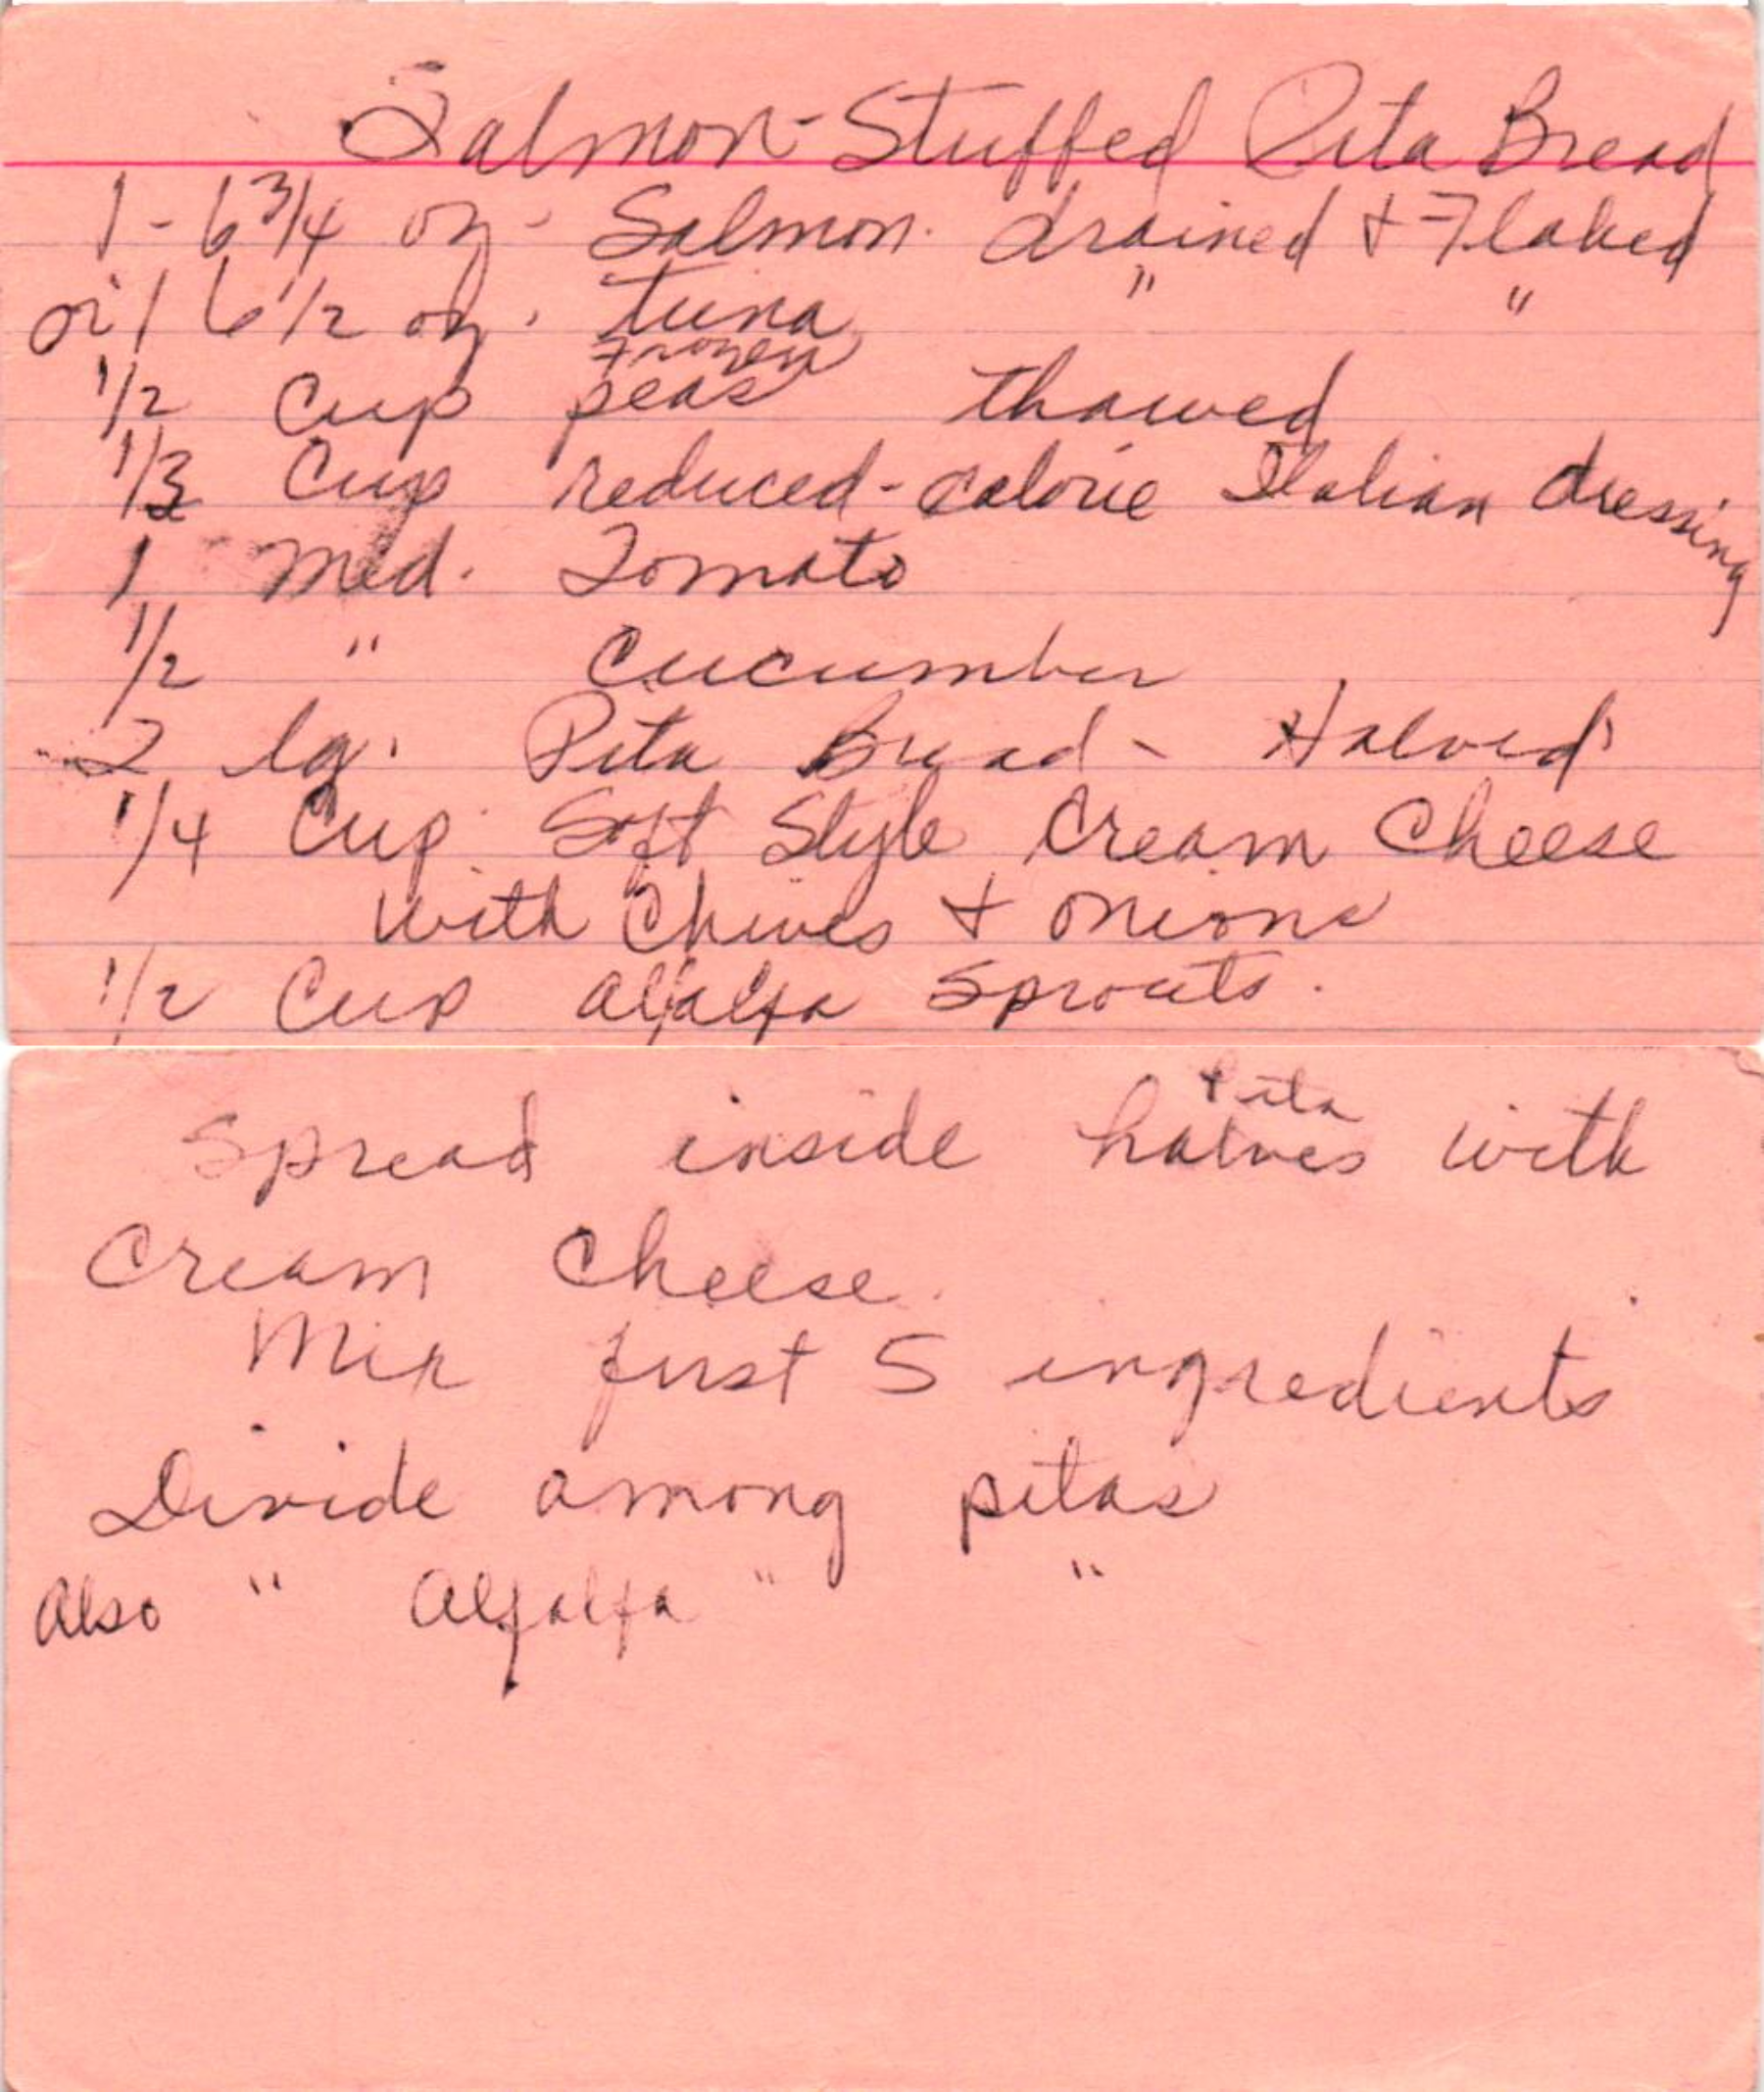 Salmon-Stuffed Pita Bread
1 - 6 3/4 oz - Salmon. drained + Flaked
or 1 6 1/2 oz. tuna " "
1/2 Cup frozen peas thawed
1/3 Cup reduced-calorie Italian dressing
1 med. Tomato
1/2 " Cucumber
2 lg. Pita Bread - Halved
1/4 Cup Soft Style Cream Cheese
with Chives + onions
1/2 Cup alfalfa Sprouts.
Spread inside pita halves with
Cream Cheese.
Mix first 5 ingredients
Divide among pitas
Also " Alfalfa " "